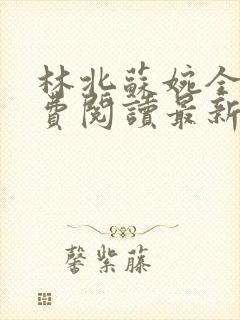 林北蘇婉全
費閱讀最新
馨紫藤